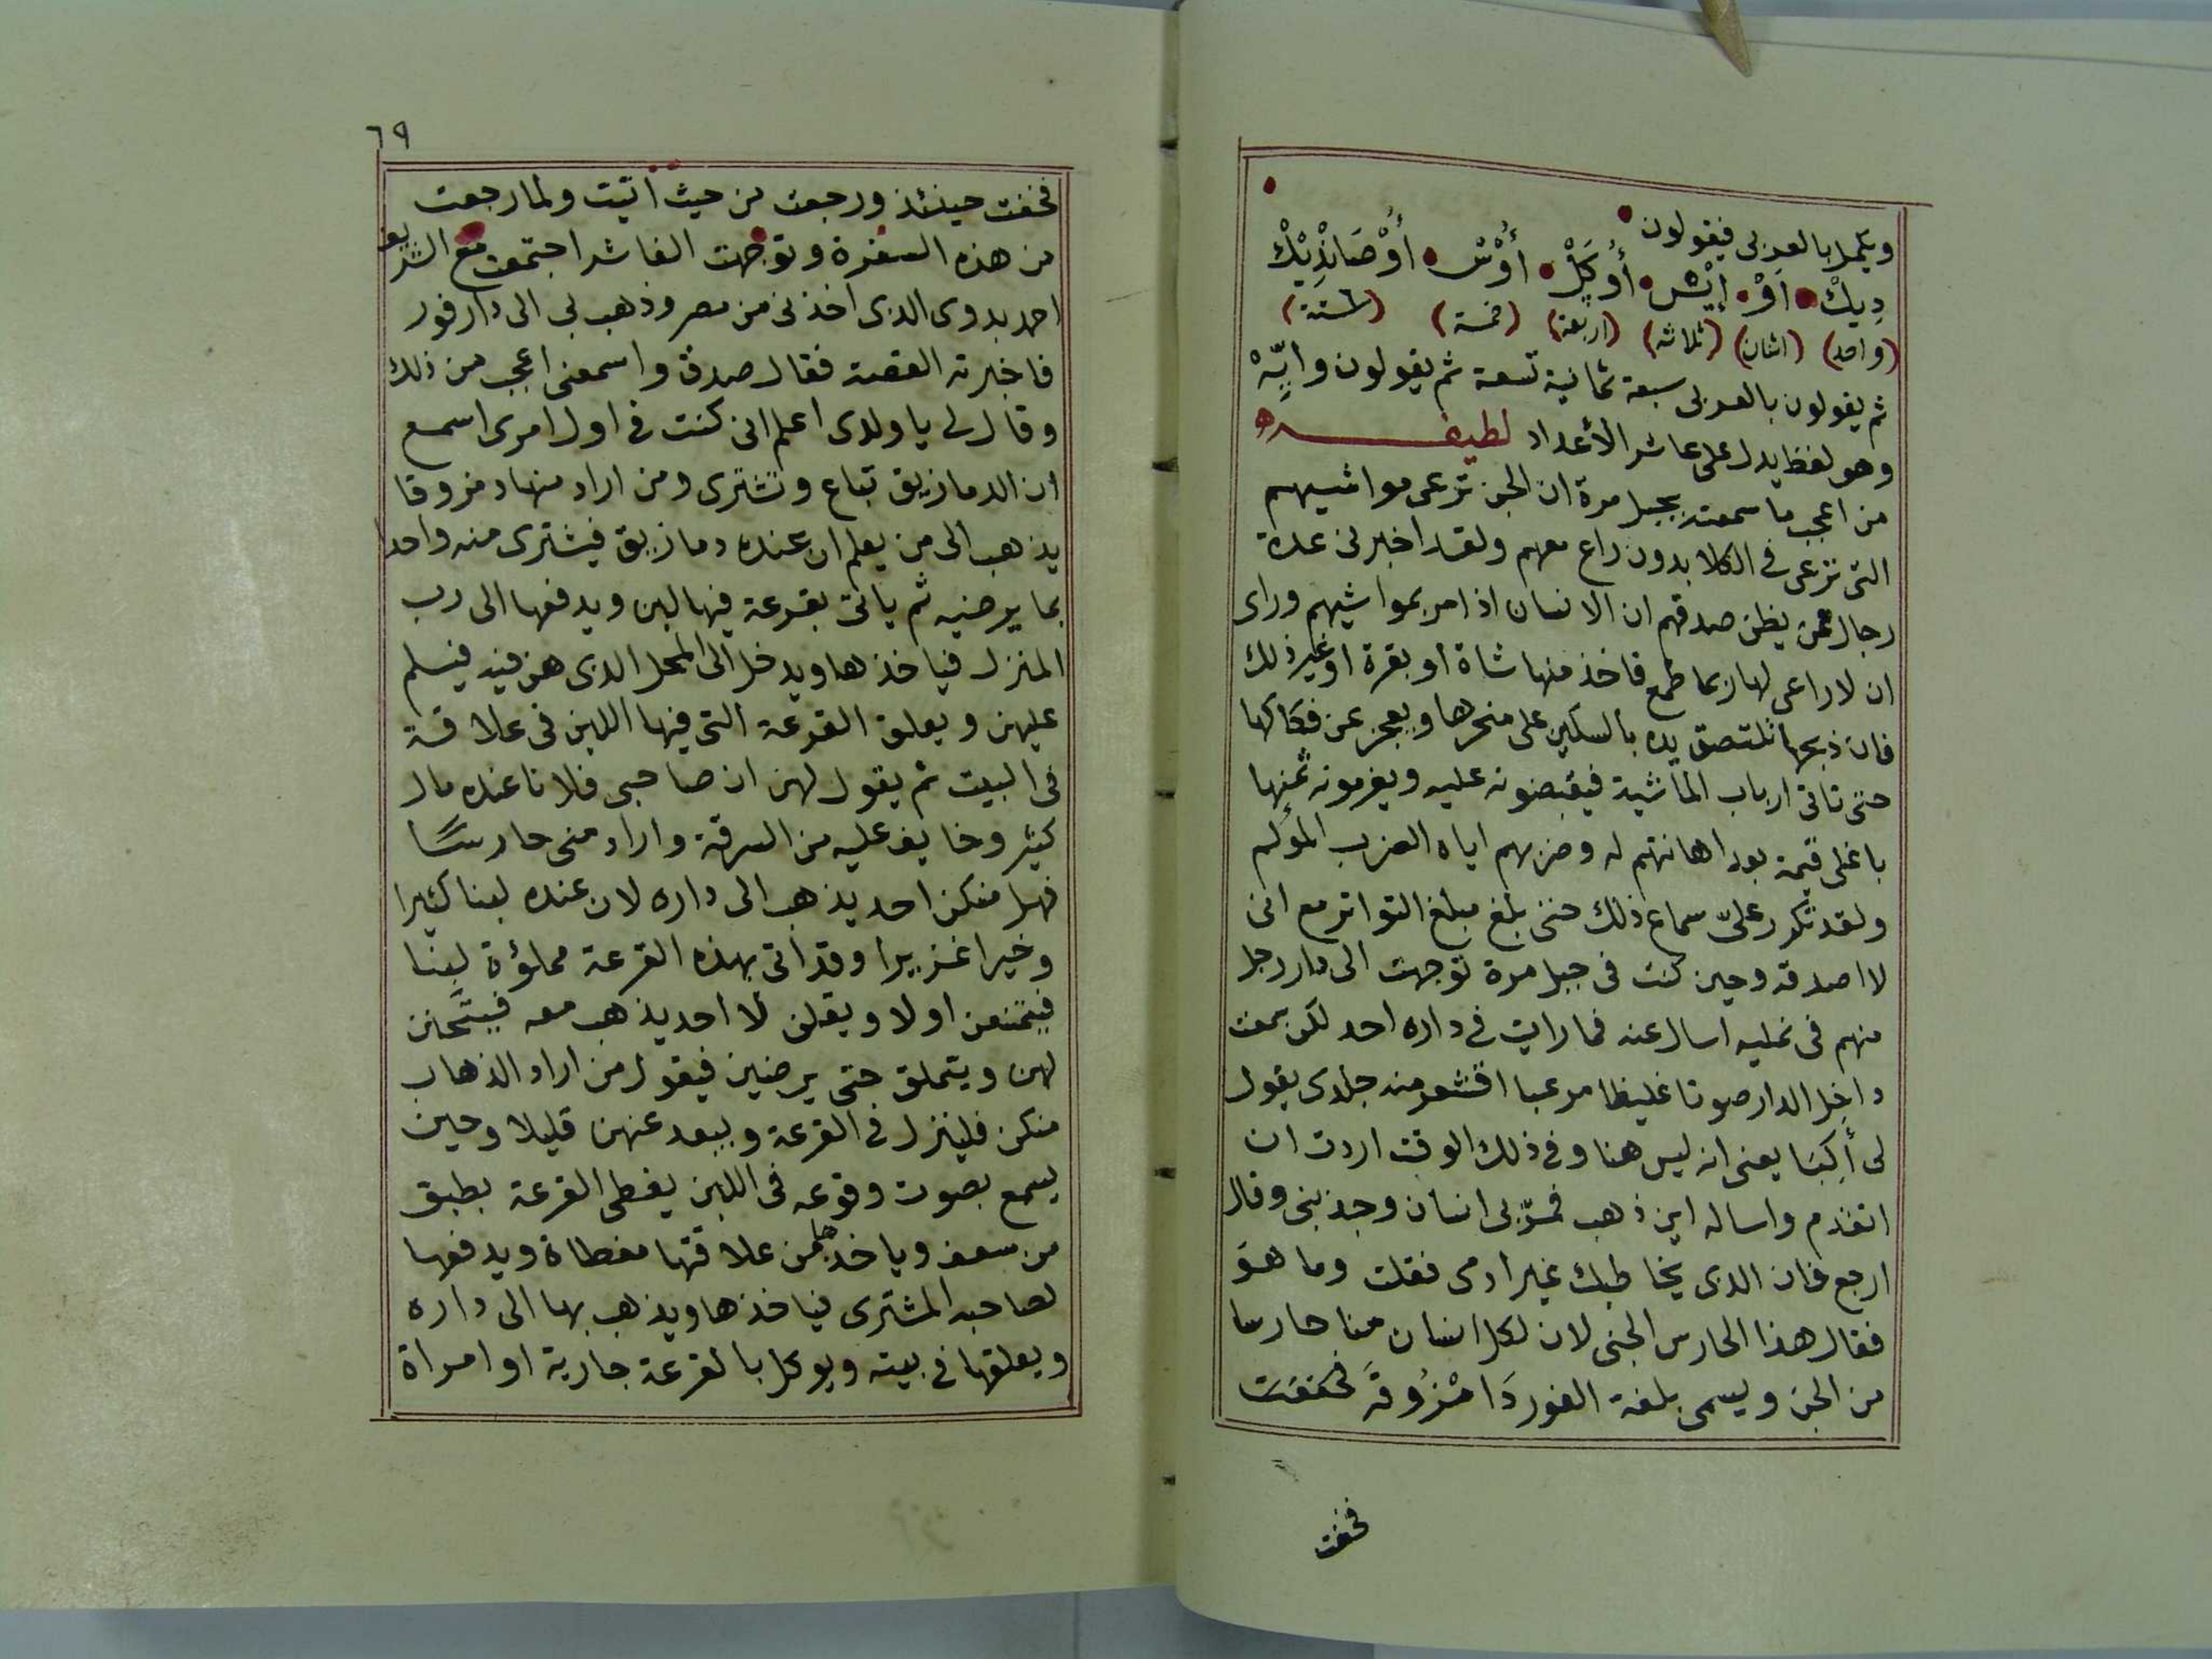 ويكمل بالعربى فيقولون
دِيكْ اَوْ إيْسْ أُوكَلْ أُوْسْ أَوْصَانْذِيْكْ
(واحد) (اثنان) (ثلاثه) (اربعة) (خمسة) (ستة)
ثم يقولون بالعربى سبعة ثمانية تسعة ثم يقولون وايِّهْ
وهو لفظ يدل على عاشر الأعداد لطيفه
من اعجب ما سمعته بجبل مرة ان الجن ترعى مواشيهم
التى ترعى فى الكلا بدون راع معهم ولقد اخبرنى عدة
رجال ممن يظن صدقهم ان الانسان اذا مر بمواشيهم وراى
ان لا راعى لها ربما طمع فاخذ منها شاة او بقرة او غير ذلك
فان ذبحها تلتصق يده بالسكين على منحرها ويعجز عن فكاكها
حتى تاتى ارباب الماشية فيقبضونه عليه ويغرمونه ثمنها
باغلى قيمة بعد اهانتهم له وضربهم اياه الضرب المؤلم
ولقد تكرر علىّ سماع ذلك حتى بلغ مبلغ التواتر مع انى
لا اصدقه وحين كنت فى جبل مرة توجهت الى دار رجل
منهم فى نمليه اسال عنه فما رايت فى داره احد لكن سمعت
داخل الدار صوتا غليظا مرعبا اقشعر منه جلدى يقول
لى أكِبَا يعنى انه ليس هنا وفى ذلك الوقت اردت ان
اتقدم واساله اين ذهب فمرّ بى انسان وجذبنى وقال
ارجع فان الدى يخاطبك غير ادمى فقلت وما هوَ
فقال هذا الحارس الجنى لان لكل انسان منا حارسا
من الجن ويسمى بلغة الفور دَامْزُوقَ فخفت
فخفت
٦٩
فخفت حينئذ ورجعت من حيث اتيت ولما رجعت
من هذه السفرة وتوجهت الفاشر اجتمعت مع الشريف
احمد بدوى الدى اخذنى من مصر وذهب بى الى دارفور
فاخبرته القصة فقال صدق واسمعنى اعجب من ذلك
وقال لى ياولدى اعلم انى كنت فى اول امرى اسمع
ان الدمازيق تباع وتشترى ومن اراد منها دمزوقا
يذهب الى من يعلم ان عنده دمازيق فيشترى منه واحد
بما يرضيه ثم ياتى بقرعة فيها لبن ويدفعها الى رب
المنزل فياخذها ويدخل الى المحل الدى هن فيه فيسلم
عليهن ويعلق القرعة التى فيها اللبن فى علاقة
فى البيت ثم يقول لهن ان صاحبى فلانا عنده مال
كثير وخايف عليه من السرقة واراد منى حارسًا
فهل منكن احد يذهب الى داره لان عنده لبنا كثيرا
وخيرا غزيرا وقد اتى بهذه القرعة مملؤة لبنا
فيتمنعن اولا ويقلن لا احد يذهب معه فيتحنن
لهن ويتملق حتى يرضين فيقول من اراد الذهاب
منكن فلينزل فى القرعة ويبعد عنهن قليلا وحين
يسمع بصوت وقوعه فى اللبن يغطى القرعة بطبق
من سعف وياخذها من علاقتها مغطاة ويدفعها
لصاحبه المشترى فياخذها ويذهب بها الى داره
ويعلقها فى بيته ويوكل بالقرعة جارية او امراة